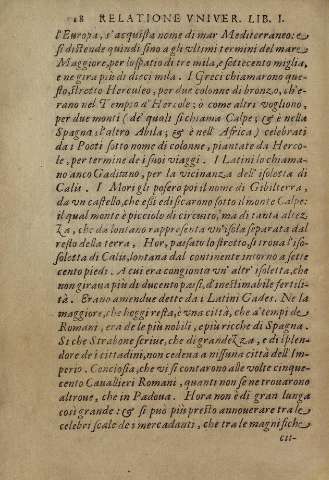 18 RELATIONE VNIVER. LIB. I.
l'Europa, s'acquista nome di mar Mediterraneo: e
si distende quindi sino a gli vltimi termini del mare
Maggiore, per lo spatio di tre mila, e settecento miglia,
e ne gira più di dieci mila. I Greci chiamarono que-
sto, stretto Herculeo, per due colonne di bronzo, ch'e-
rano nel Tempio d'Hercole; ò come altri vogliono,
per due monti (de' quali si chiama Calpe; & è nella
Spagna; l'altro Abila; & è nell' Africa) celebrati
da i Poeti sotto nome di colonne, piantate da Herco-
le, per termine de i suoi viaggi. I Latini lo chiama-
no anco Gaditano, per la vicinanza dell' isoletta di
Calis. I Mori gli posero poi il nome di Gibilterra,
da vn castello, che essi edificarono sotto il monte Calpe:
il qual monte è picciolo di circuito, ma di tanta altez-
za, che da lontano rappresenta vn'isola separata dal
resto della terra. Hor, passato lo stretto, si troua l'iso-
soletta di Calis, lontana dal continente intorno a sette
cento piedi. A cui era congionta vn' altr' isoletta, che
non giraua più di ducento passi, d'inestimabile fertili-
tà. Erano amendue dette da i Latini Gades. Ne la
maggiore, che hoggi resta, è vna città, che a' tempi de
Romani, era de le più nobili, e più ricche di Spagna.
Si che Strabone scriue, che di grandezza, e di splen-
dore de i cittadini, non cedena a nissuna città dell'Im-
perio. Conciosia, che vi si contarono alle volte cinque-
cento Cauallieri Romani, quanti non se ne trouarono
altroue, che in Padoua. Hora non è di gran lunga
così grande: & si può più presto annouerare tra le
celebri scale de i mercadanti, che tra le magnifiche
cit-